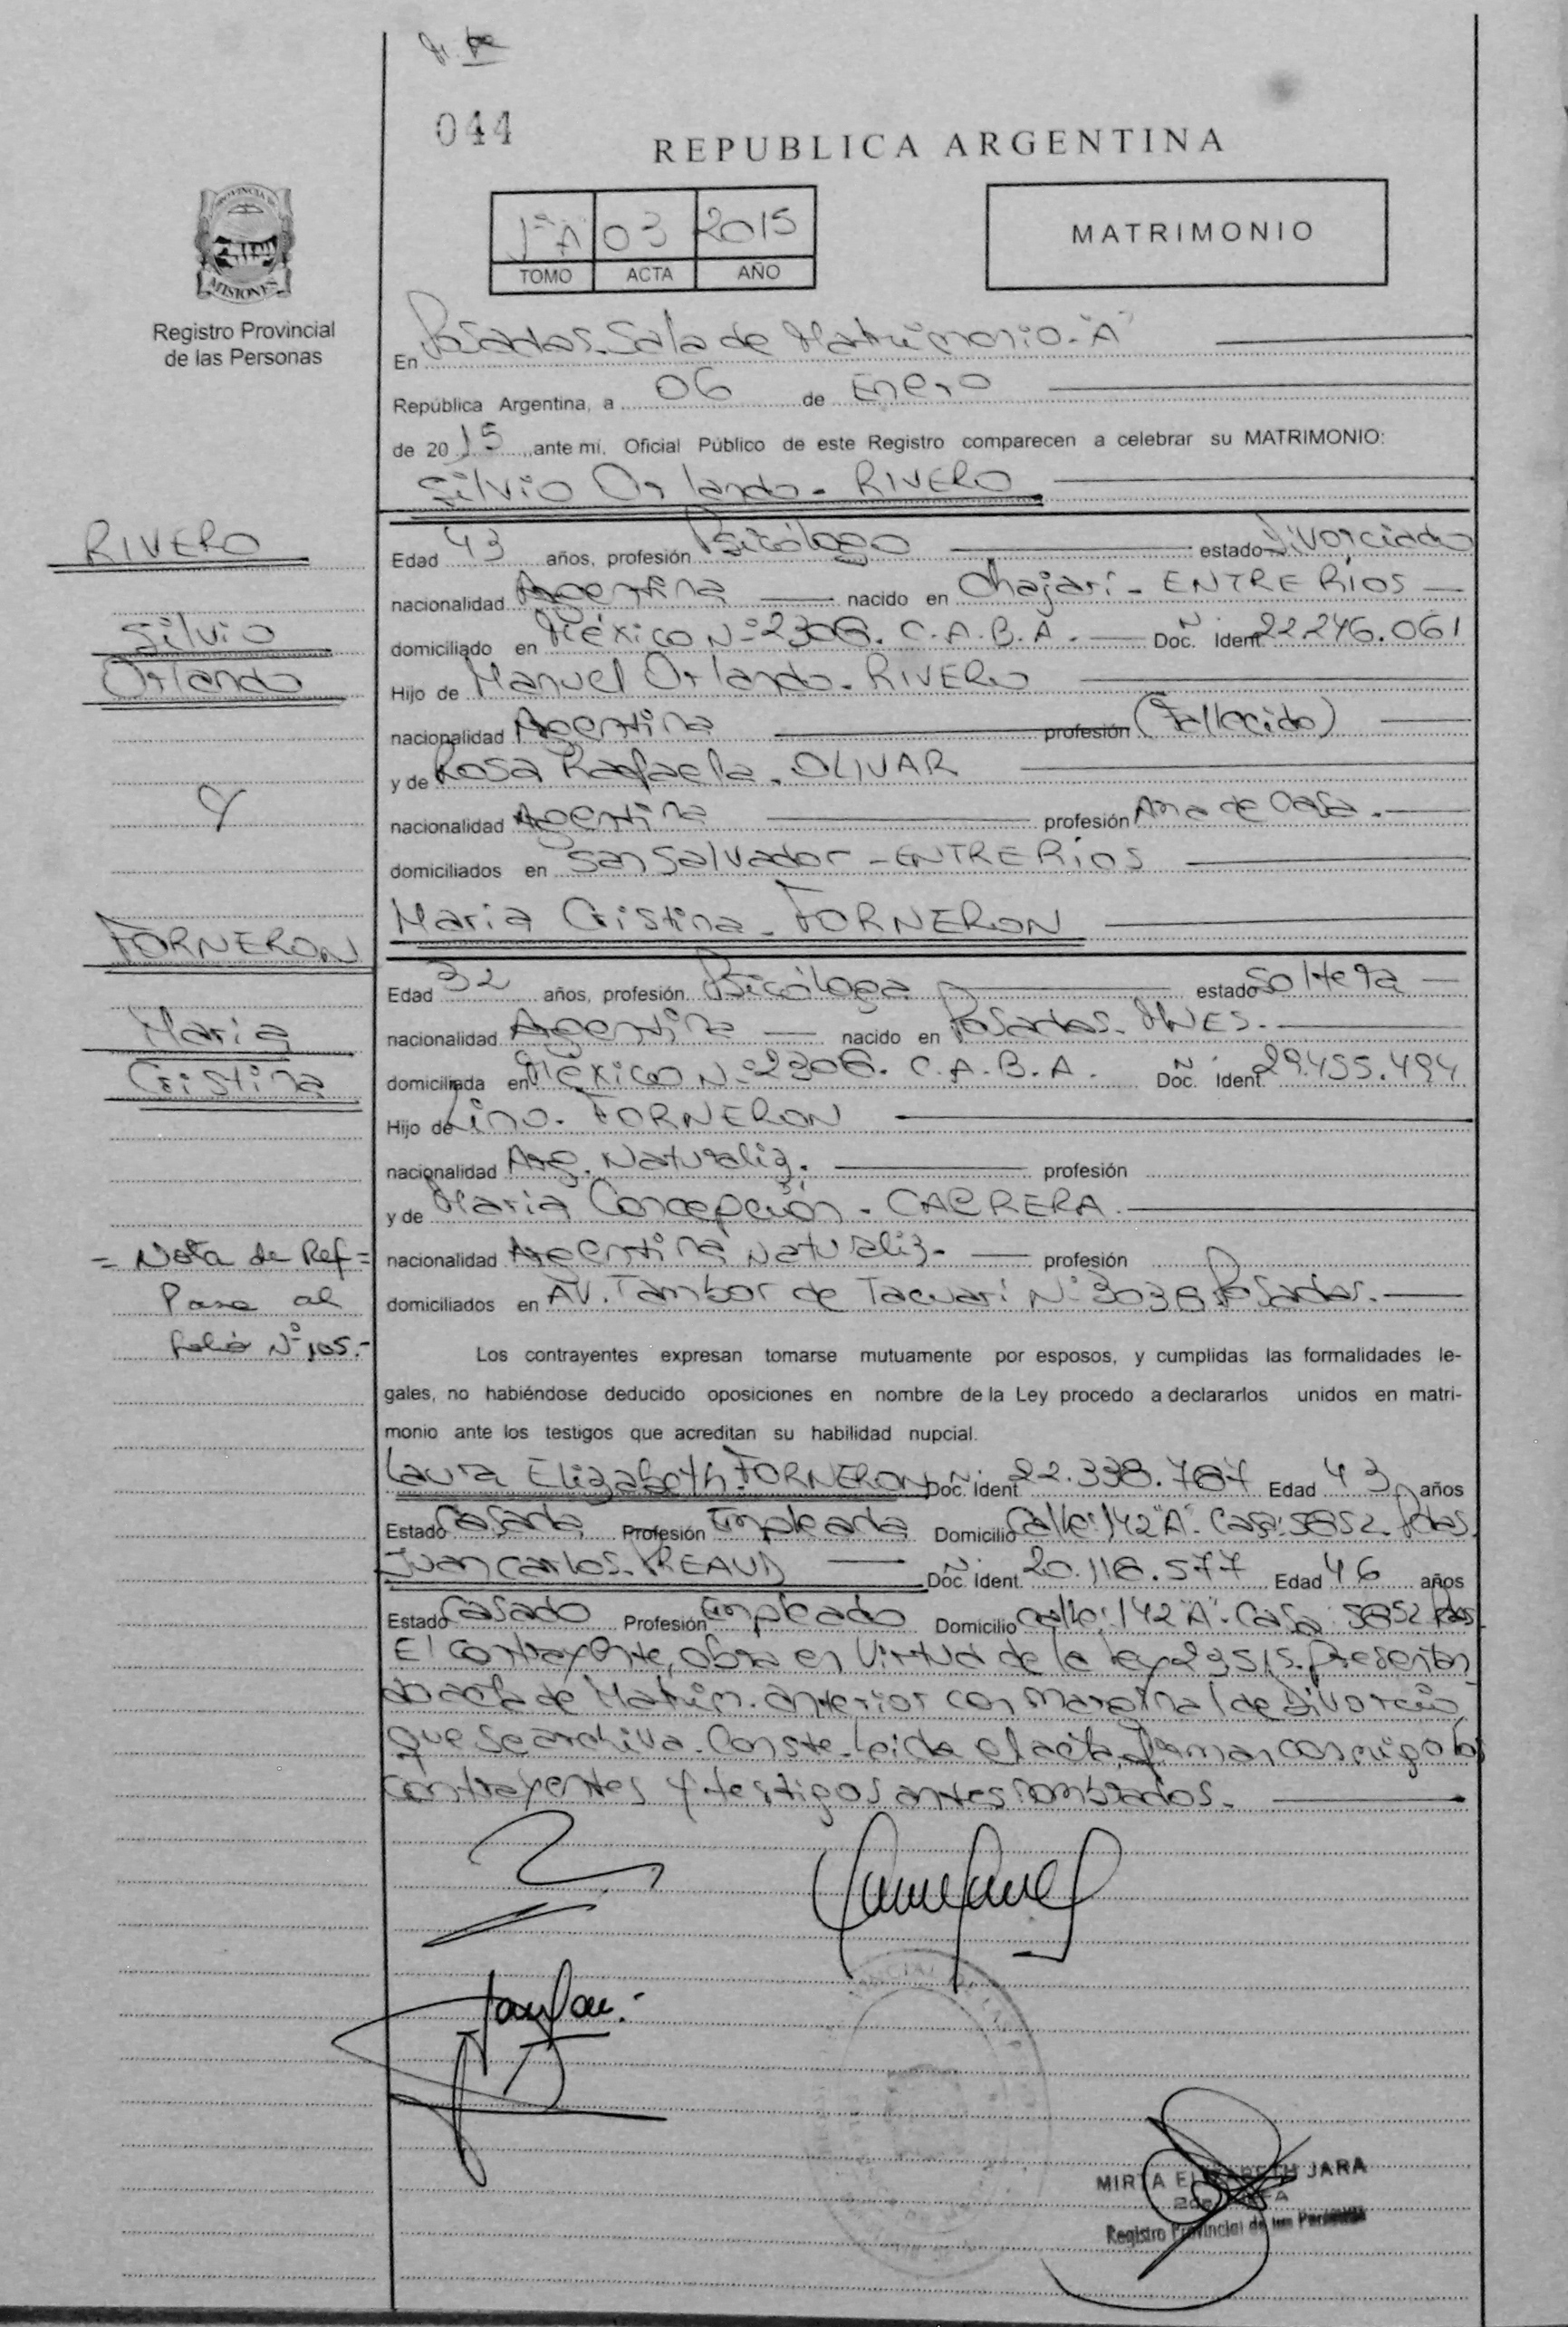 044
REPUBLICA ARGENTINA
PROVINCIA DE
MISIONES
Registro Provincial
de las Personas
1º "A" 03 2015
TOMO ACTA AÑO
MATRIMONIO
En Posadas. Sala de Matrimonio. "A"
República Argentina, a 06 de Enero
de 2015 ante mi. Oficial Público de este Registro comparecen a celebrar su MATRIMONIO:
Silvio Orlando. RIVERO
RIVERO
Silvio
Orlando
Edad 43 años, profesión Psicólogo estado Divorciado
nacionalidad Argentina nacido en Chajarí - ENTRE RÍOS
domiciliado en México Nº 2308. C.A.B.A. Doc. Ident. Nº 22.246.061
Hijo de Manuel Orlando. RIVERO
nacionalidad Argentina profesión (Fallecido)
y de Rosa Rafaela. OLIVAR
nacionalidad Argentina profesión Ama de Casa.
domiciliados en San Salvador - ENTRE RIOS
y
Maria Cristina. FORNERON
FORNERON
Maria
Cristina
Edad 32 años, profesión Psicóloga estado Soltera
nacionalidad Argentina nacido en Posadas. MNES.
domiciliada en México Nº 2308. C.A.B.A. Doc. Ident. Nº 29.455.494
Hijo de Lino. FORNERON
nacionalidad Arg. Naturaliz. profesión
y de Maria Concepción. CABRERA.
nacionalidad Argentina Naturaliz. profesión
domiciliados en AV. Tambor de Tacuarí Nº 3038 Posadas.
= Nota de Ref =
Pasa al
folio Nº 105.-
Los contrayentes expresan tomarse mutuamente por esposos, y cumplidas las formalidades le-
gales, no habiéndose deducido oposiciones en nombre de la Ley procedo a declararlos unidos en matri-
monio ante los testigos que acreditan su habilidad nupcial.
Laura Elizabeth. FORNERON Doc. Ident. Nº 22.338.787 Edad 43 años
Estado Casada Profesión Empleada Domicilio Calle: 142 "A". Casa: 5852. Pdas.
Juan Carlos. PREAUD Doc. Ident. Nº 20.118.577 Edad 46 años
Estado Casado Profesión Empleado Domicilio Calle: 142 "A". Casa: 5852 Pdas
El contrayente, obra en virtud de la ley 23.515. Presentan
do acta de Matrim. anterior con marginal de Divorcio,
que se archiva. Conste. Leida el acta, firman conmigo los
contrayentes y testigos antes nombrados.
MIRTA ELIZABETH JARA
Registro Provincial de las Personas